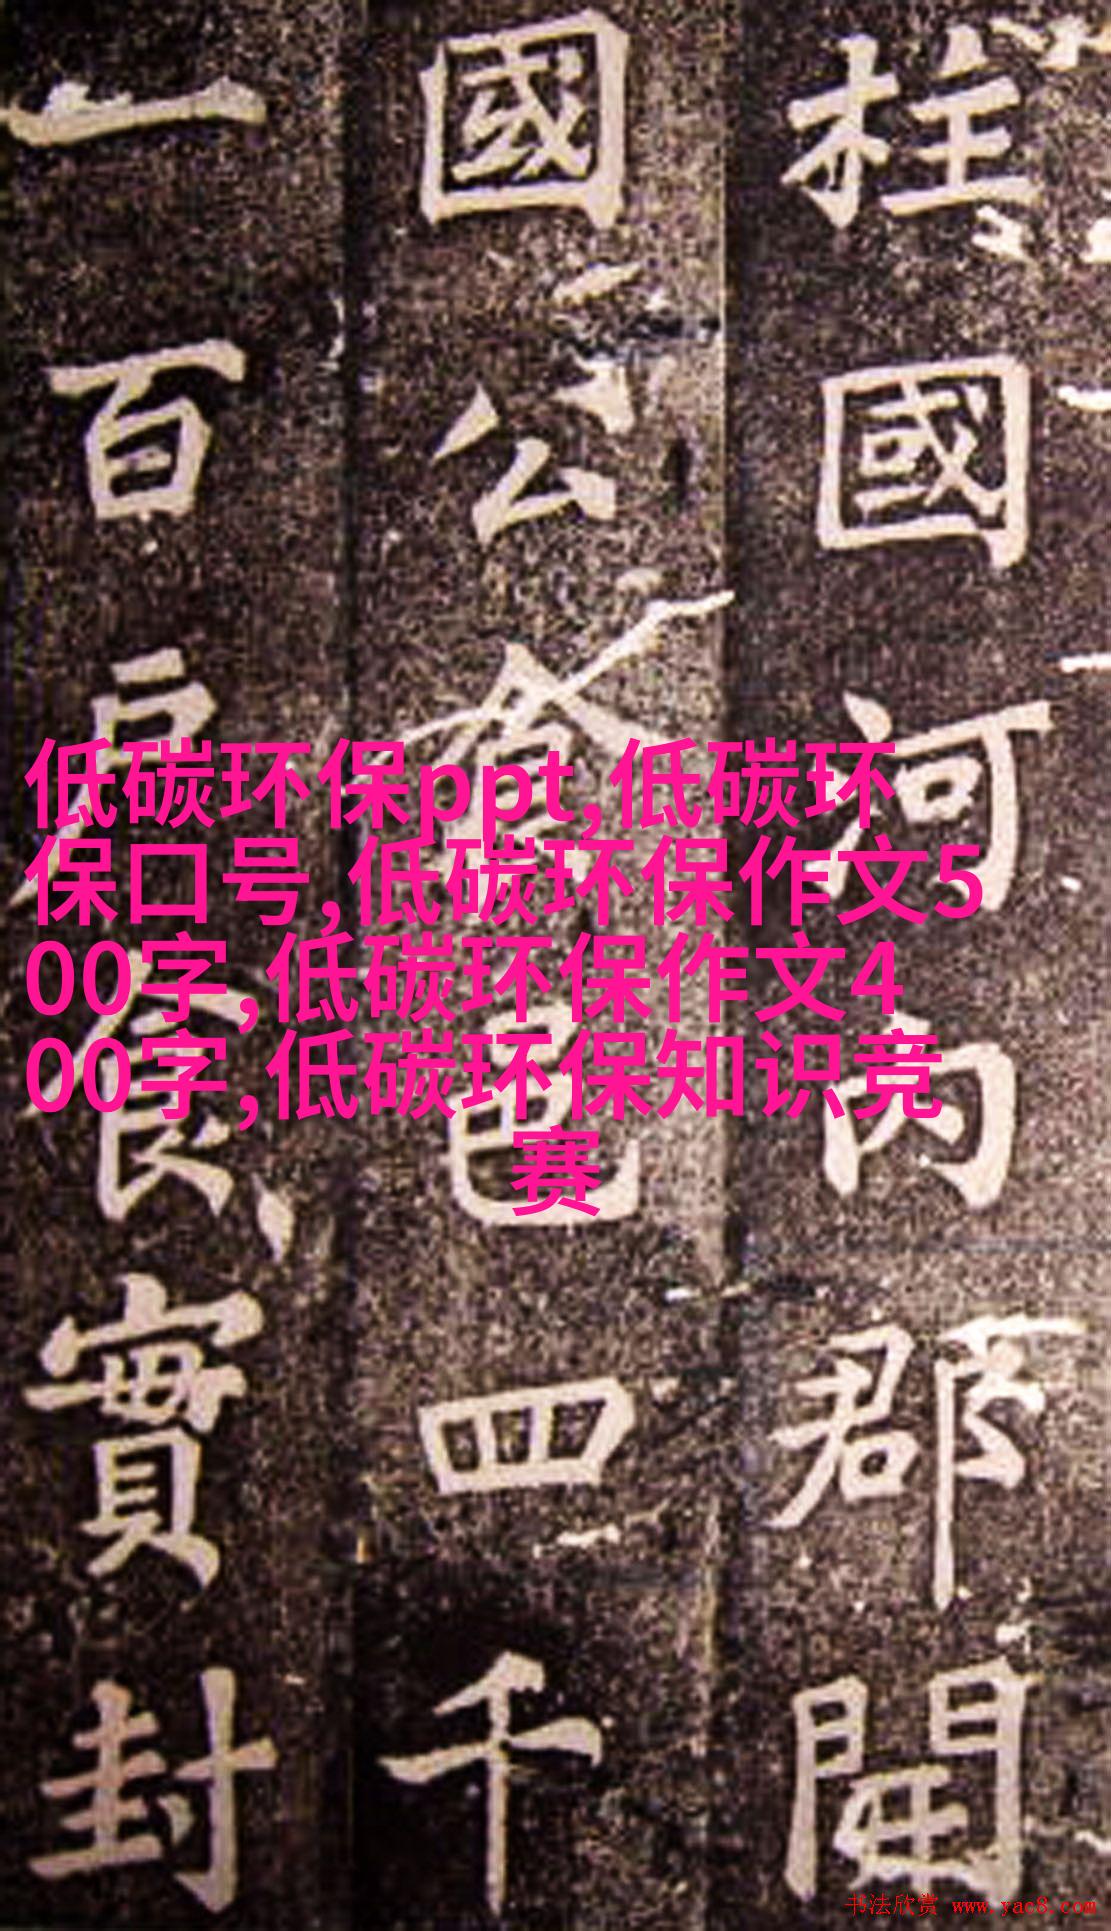 柱國河內郡開
國公食邑四千
一百戶食實封
低碳环保ppt,低碳环
保口号,低碳环保作文5
00字,低碳环保作文4
00字,低碳环保知识竞
赛
书法欣赏 www.yac8.com